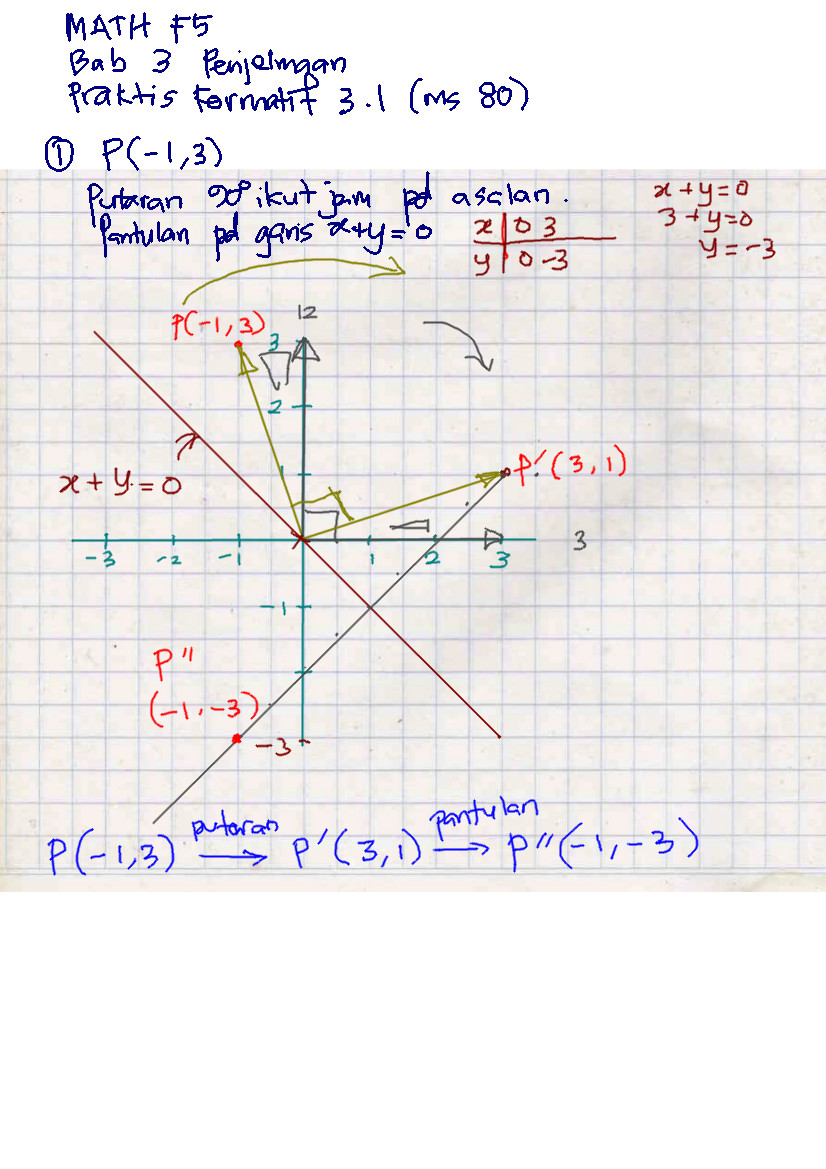 MATH F5
Bab 3 Penjelmaan
Praktis Formatif 3.1 (ms 80)
① P(-1,3)
Putaran 90° ikut jam pd asalan.
Pantulan pd garis x+y=0
x | 0 3
y | 0 -3
x+y=0
3+y=0
y=-3
12
P(-1,3)
3
2
1
P'(3,1)
x+y=0
-3 -2 -1 1 2 3
3
-1
P"
(-1,-3)
-3
P(-1,3) putaran → P'(3,1) pantulan → P"(-1,-3)